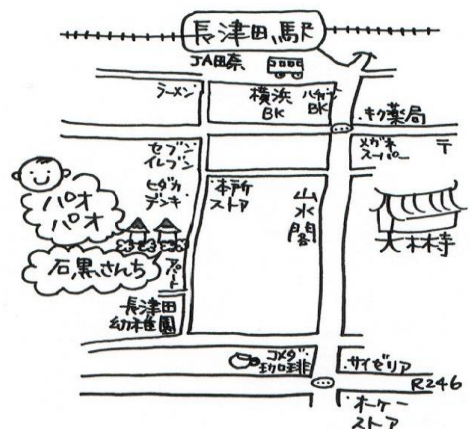 長津田駅
JA田奈
ラーメン
横浜
BK
ハマギン
BK
キク薬局
セブン
イレブン
メガネ
スーパー
〒
ヒダカ
デンキ
本戸所
ストア
山水閣
大林寺
パオ
パオ
石黒さんち
アパート
長津田
幼稚園
コメダ
珈琲
サイゼリア
R246
オーケー
ストア